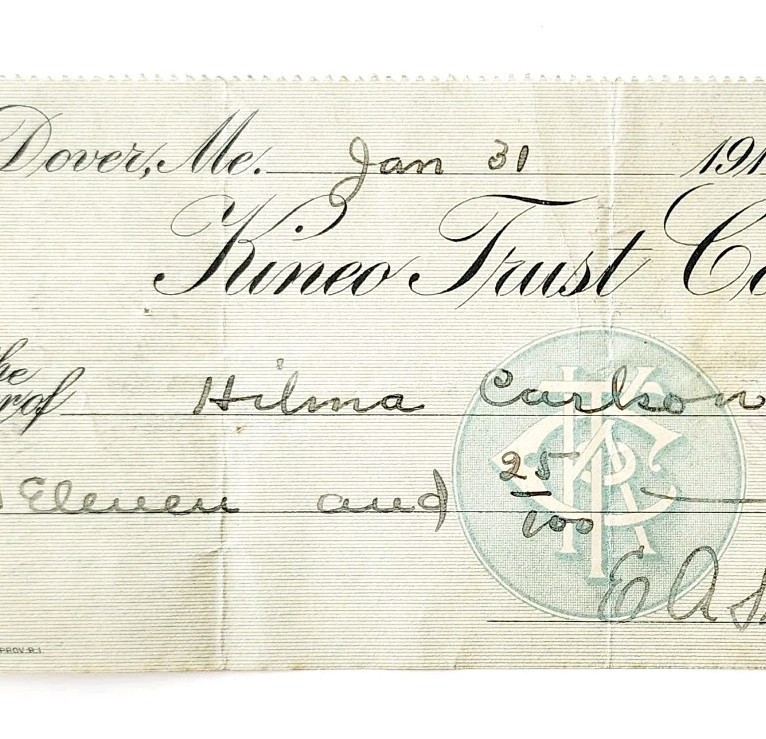 Dover, Me. Jan 31 191
Kineo Trust Co
he
r of Hilma Carlson
Eleven and 25/100
E A
PROV. R.I.